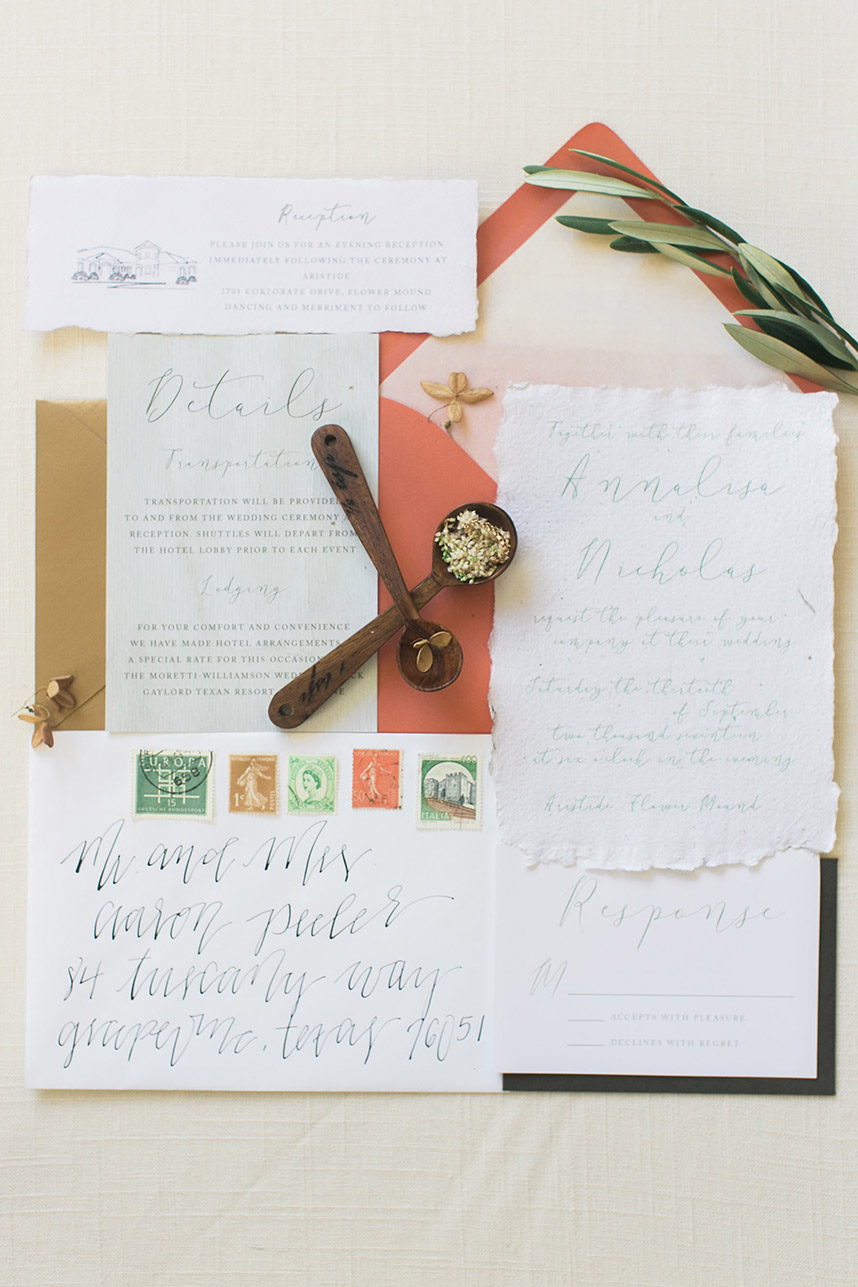 Reception
PLEASE JOIN US FOR AN EVENING RECEPTION
IMMEDIATELY FOLLOWING THE CEREMONY AT
ARISTIDE
3701 CORPORATE DRIVE, FLOWER MOUND
DANCING AND MERRIMENT TO FOLLOW
Details
Transportation
TRANSPORTATION WILL BE PROVIDED
TO AND FROM THE WEDDING CEREMONY
RECEPTION. SHUTTLES WILL DEPART FROM
THE HOTEL LOBBY PRIOR TO EACH EVENT
Lodging
FOR YOUR COMFORT AND CONVENIENCE
WE HAVE MADE HOTEL ARRANGEMENTS
A SPECIAL RATE FOR THIS OCCASION
THE MORETTI-WILLIAMSON
GAYLORD TEXAN RESORT
Together with their families
Annalisa
and
Nicholas
request the pleasure of your
company at their wedding
Saturday the thirtieth
of September
two thousand seventeen
at six o'clock in the evening
Aristide Flower Mound
EUROPA
15
DEUTSCHE BUNDESPOST
1c
POSTES
50
400
ITALIA
Mr and Mrs
aaron peeler
84 tuscany way
grapevine, texas 76051
Response
M
ACCEPTS WITH PLEASURE
DECLINES WITH REGRET